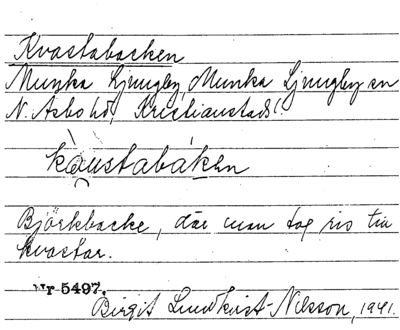 Kvastabacken
Munka Ljungby, Munka Ljungby sn
N. Åsbo hd, Kristianstads l.
kåustabáken
Björkbacke, där man tog ris till
kvastar.
Nr 5497.
Birgit Lundkvist-Nilsson, 1941.